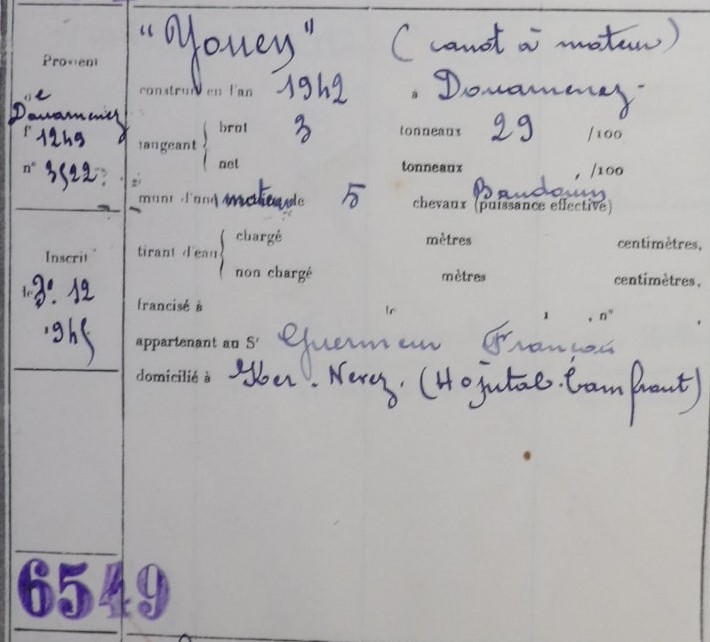 "Youen" (canot à moteur)
Provient
construit en l'an 1942 à Douarnenez
de
Douarnenez
f° 1249
jaugeant { brut 3 tonneaux 29 /100
net tonneaux , /100
n° 3522
muni d'un moteur de 5 chevaux (puissance effective) Baudouin
Inscrit
tirant d'eau { chargé mètres centimètres,
non chargé mètres centimètres,
le 30.12
1945
francisé à le , n° .
appartenant au Sr Guermeur François
domicilié à Ker. Nevez. (Hôpital. Camfrout)
6549